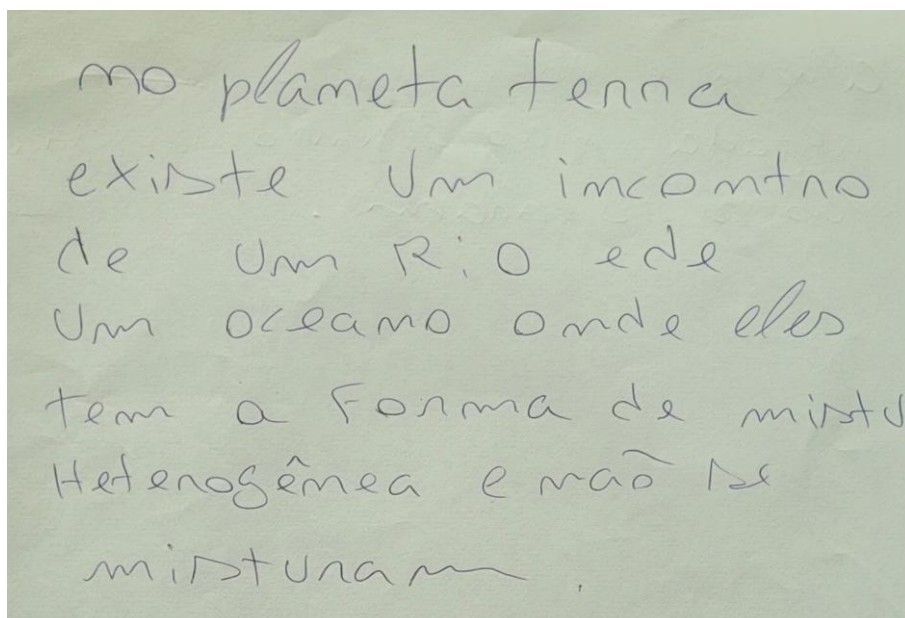 no planeta terra
existe Um incontro
de Um Rio ede
Um oceano onde eles
tem a Forma de mistu
Heterogênea e não se
misturam.